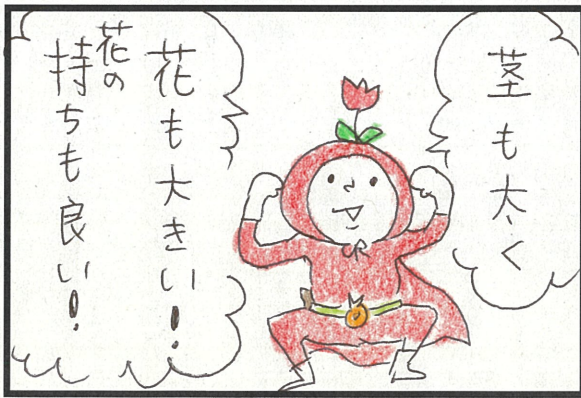 茎も太く
花も大きい!
花の
持ちも良い!